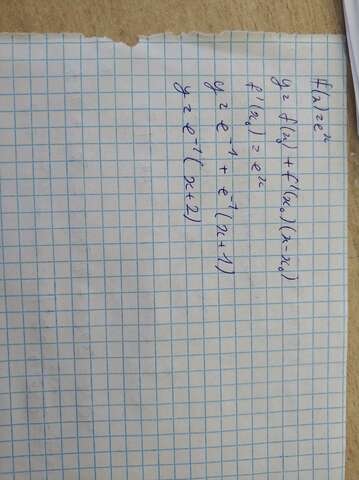 f(x)=eˣ
y= f(x₀) + f'(x₀)(x-x₀)
f'(x₀) = eˣ
y= e⁻¹ + e⁻¹(x+1)
y= e⁻¹(x+2)